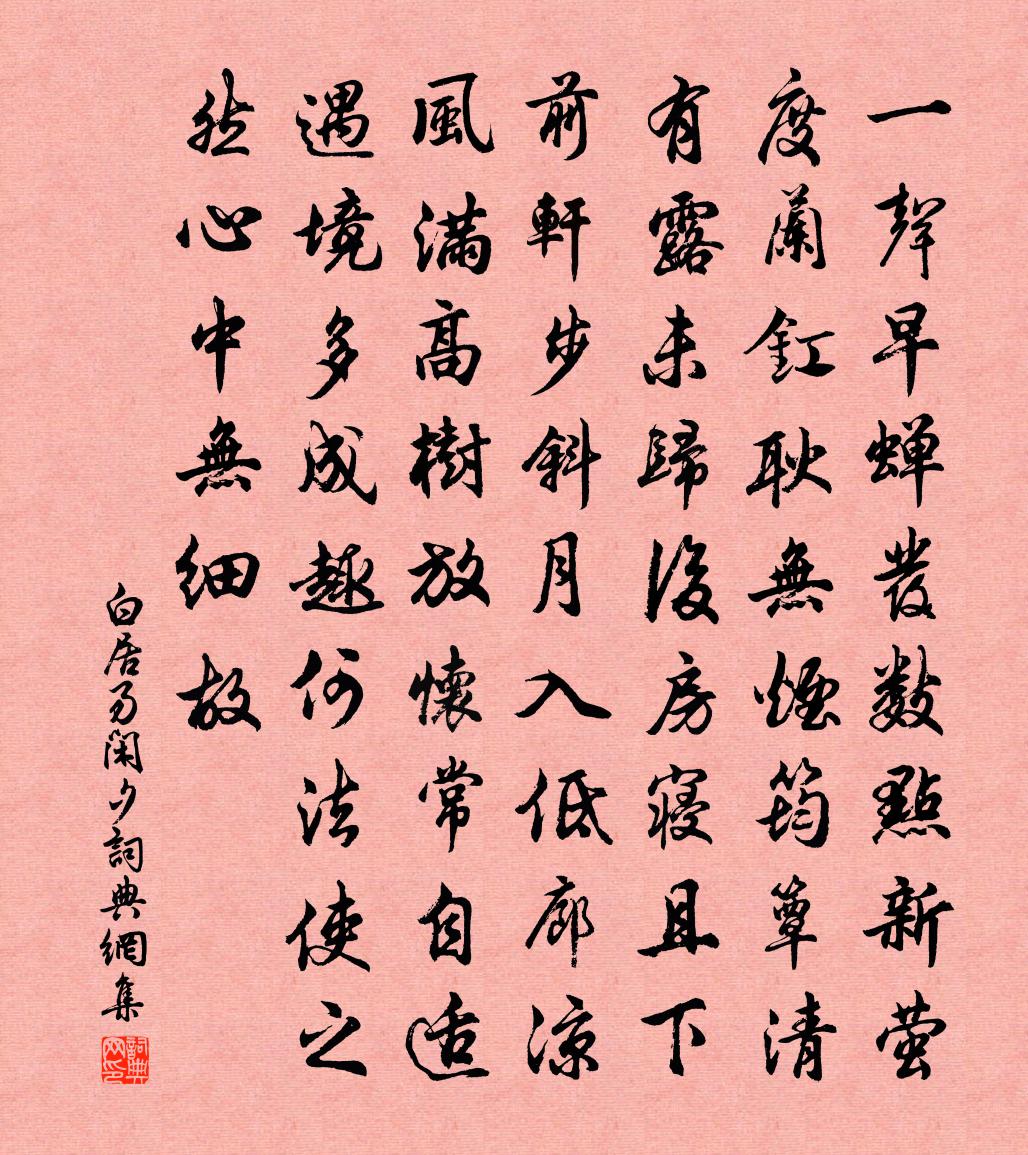 一聲早蝉發數點新萤
度蘭釭耿無煙筠簟清
有露未歸後房寝且下
前軒步斜月入低廊涼
風满高樹放懷常自适
遇境多成趣何法使之
然心中無细故
白居易闲夕詞典網集
詞典网印